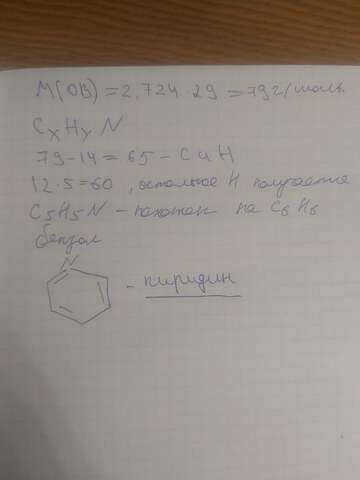 M(ОВ) = 2,724 · 29 = 79 г/моль
CxHyN
79-14 = 65 - C и H
12·5=60, остальное H получается
C5H5N - похож на C6H6
бензол
N
- пиридин